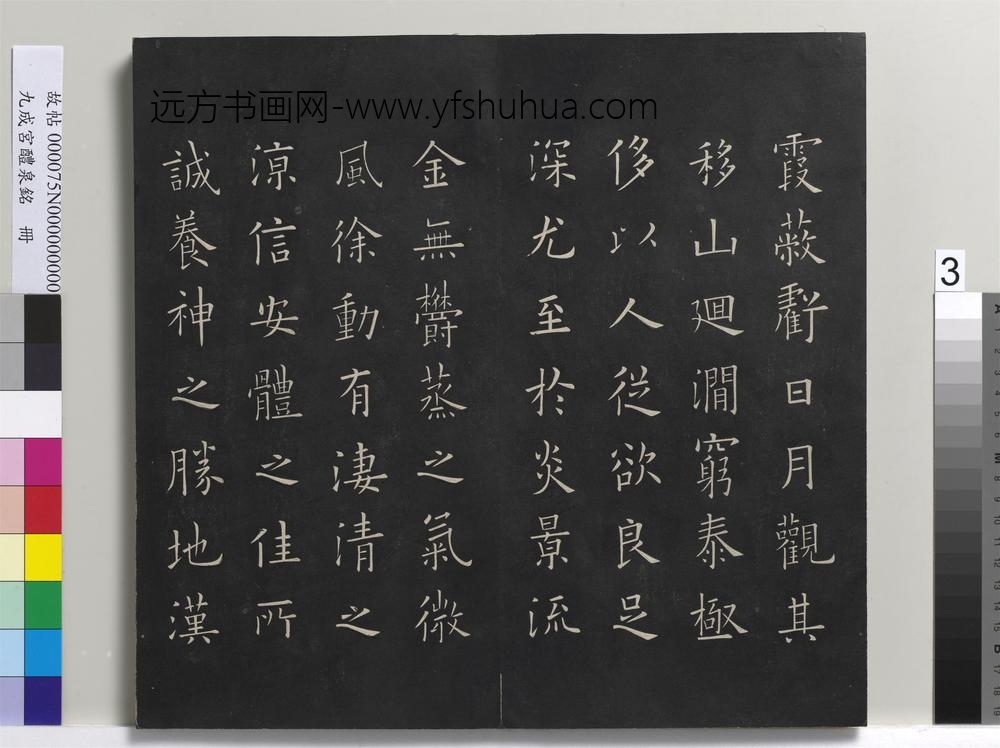 远方书画网-www.yfshuhua.com
霞蔽虧日月觀其
移山廻澗窮泰極
侈以人從欲良足
深尤至於炎景流
金無欝蒸之氣微
風徐動有淒清之
涼信安體之佳所
誠養神之勝地漢
故帖 000075N000000000
九成宮醴泉銘 冊
3